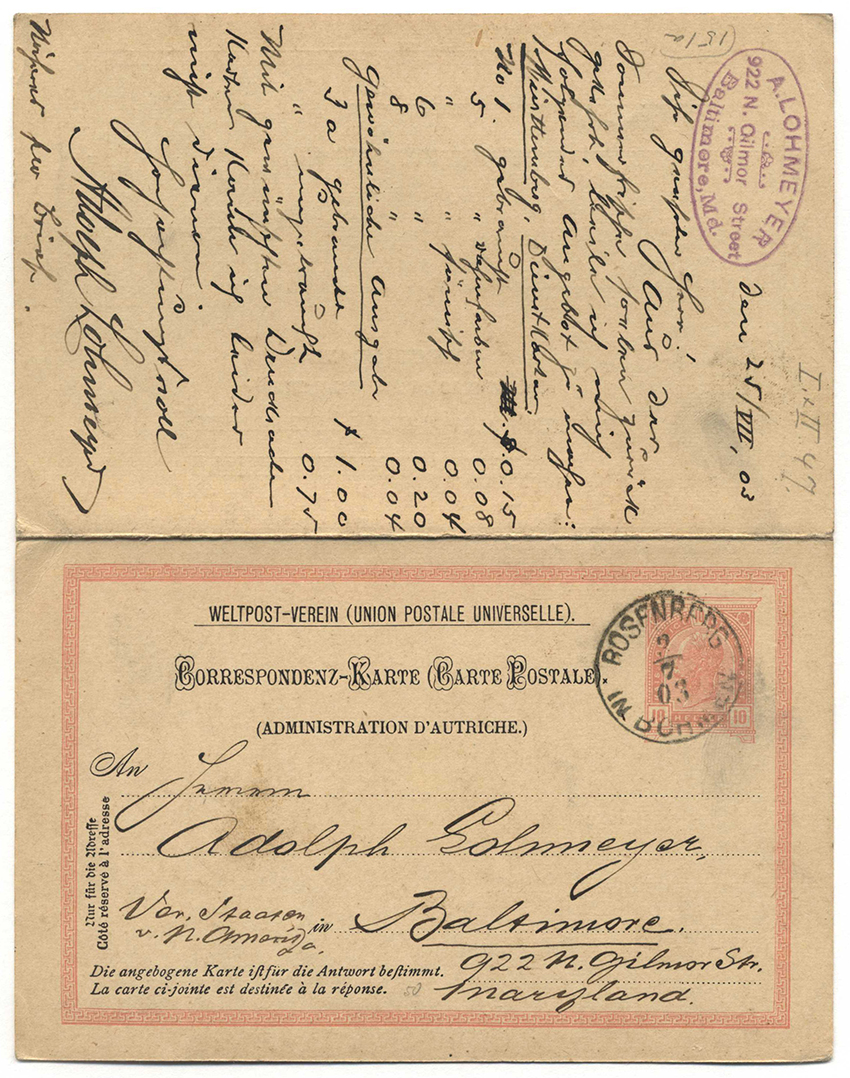 (151a)
A. LOHMEYER
922 N. Gilmor Street
Baltimore, Md.
I + II 47.
den 25/VII, 03
Sehr geehrter Herr!
Aus der
Sommerfrische soeben zurück
gekehrt, beeile ich mich
folgendes Angebot zu machen:
Württemberg, Dienstkarten
No 1. gebraucht $ 0.15
5 " 0.08
" " 0.04
6 " 0.20
8 " 0.04
Gewöhnliche Ausgabe
3 a gebraucht $ 1.00
" ungebraucht 0.75
Mit gewünschten Drucksachen
Karten kann ich leider
nicht dienen.
Hochachtungsvoll
Adolph Lohmeyer
Weiteres per Brief.
WELTPOST-VEREIN (UNION POSTALE UNIVERSELLE).
CORRESPONDENZ-KARTE (CARTE POSTALE).
(ADMINISTRATION D'AUTRICHE.)
ROSENBERG
03
IN BÖHMEN
10 10
An Herrn
Adolph Lohmeyer,
Nur für die Adresse
Côté réservé à l'adresse
Ver. Staaten
v. N. Amerika.
in Baltimore.
922 N. Gilmor Str.
Maryland.
Die angebogene Karte ist für die Antwort bestimmt.
La carte ci-jointe est destinée à la réponse.
50